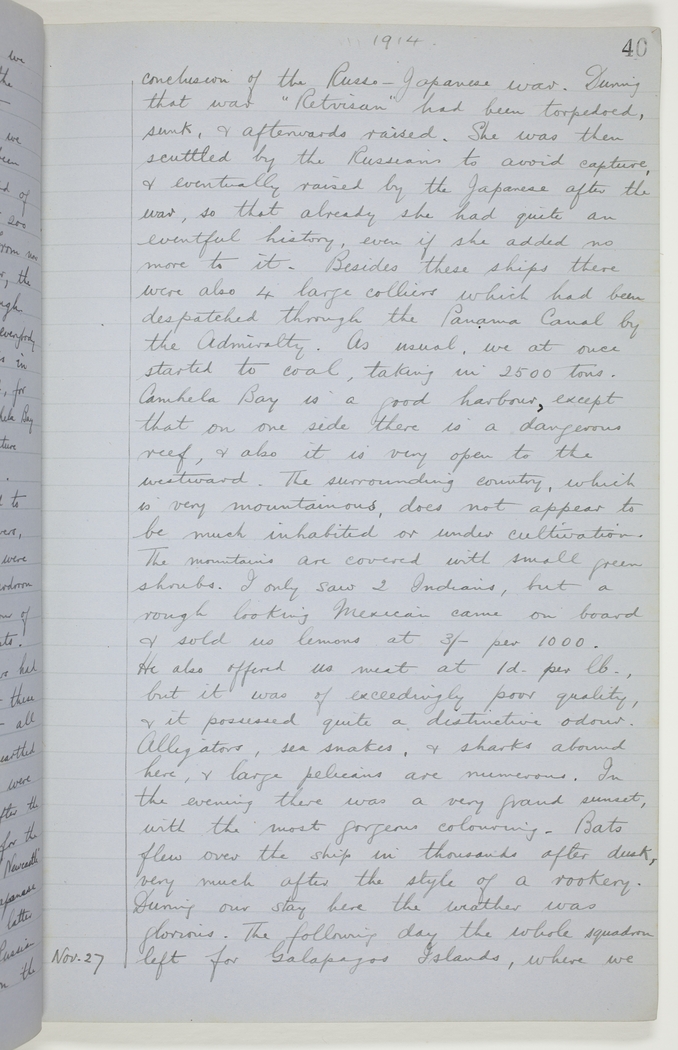 1914.
40
conclusion of the Russo-Japanese war. During
that war "Retvisan" had been torpedoed,
sunk, & afterwards raised. She was then
scuttled by the Russians to avoid capture,
& eventually raised by the Japanese after the
war, so that already she had quite an
eventful history, even if she added no
more to it. Besides these ships there
were also 4 large colliers which had been
despatched through the Panama Canal by
the Admiralty. As usual, we at once
started to coal, taking in 2500 tons.
Camhela Bay is a good harbour, except
that on one side there is a dangerous
reef, & also it is very open to the
westward. The surrounding country, which
is very mountainous, does not appear to
be much inhabited or under cultivation.
The mountains are covered with small green
shrubs. I only saw 2 Indians, but a
rough looking Mexican came on board
& sold us lemons at 3/- per 1000.
He also offered us meat at 1d. per lb.,
but it was of exceedingly poor quality,
& it possessed quite a distinctive odour.
Alligators, sea snakes, & sharks abound
here, & large pelicans are numerous. In
the evening there was a very grand sunset,
with the most gorgeous colouring. Bats
flew over the ship in thousands after dusk,
very much after the style of a rookery.
During our stay here the weather was
glorious. The following day the whole squadron
Nov. 27 left for Galapagos Islands, where we